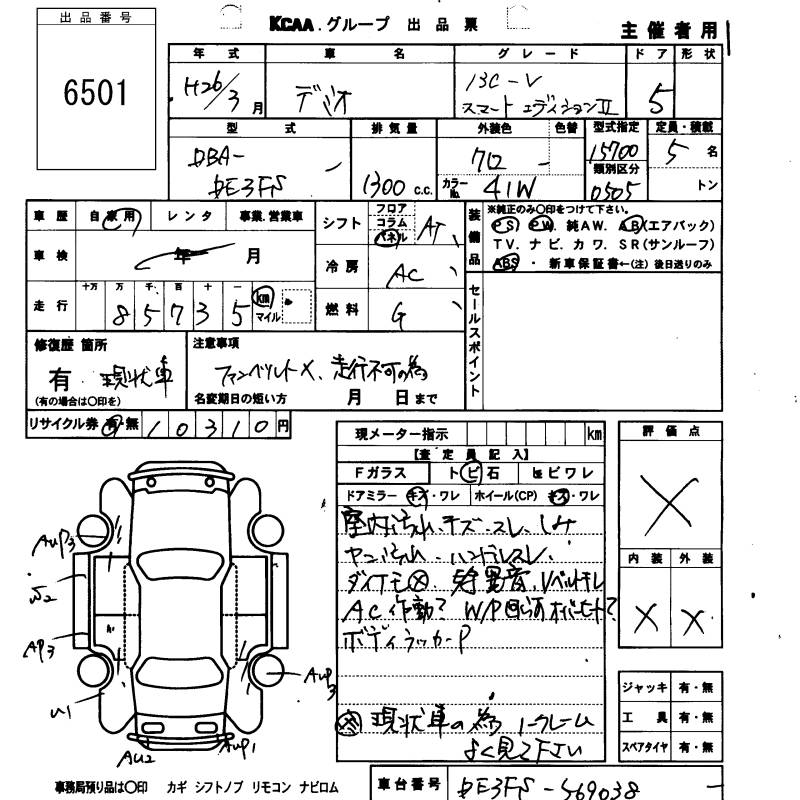 出品番号
6501
KCAA.グループ 出品票
主催者用
年式 車名 グレード ドア 形状
H26/3月 デミオ 13C-V
スマートエディションII 5
型式 排気量 外装色 色替 型式指定 定員・積載
DBA- クロ - 15700 5 名
類別区分
DE3FS 1300 c.c. カラーNo. 41W 0505 トン
車歴 自家用 レンタ 事業.営業車
シフト フロア コラム パネル AT
装備品 ※純正のみ〇印をつけて下さい。
PS PW 純AW. AB(エアバック)
TV. ナビ. カワ. SR(サンルーフ)
ABS ・ 新車保証書←(注)後日送りのみ
車検 年 月
冷房 AC
走行 十万 万 千 百 十 一
8 5 7 3 5 km マイル
燃料 G
セールスポイント
修復歴 箇所
有 現状車
(有の場合は〇印を)
注意事項
ファンベルト×、走行不可の為
名変期日の短い方 月 日まで
リサイクル券 有・無 10310円
現メーター指示 km
評価点
【査定員記入】
Fガラス トビ石 ヒビワレ
ドアミラー キズ・ワレ ホイール(CP) キズ・ワレ
室内汚れ、キズ・スレ、シミ
ヤニ汚れ、ハンドルスレ、
ダイナモ× 異音、Vベルトキレ
AC作動? W/P オーバーヒート?
ボディラッカーP
内装 外装
× ×
AUP3
AP3
U1
AU2
AUP1
AUP3
現状車の為 ノークレーム
よく見て下さい
ジャッキ 有・無
工具 有・無
スペアタイヤ 有・無
事務局預り品は〇印 カギ シフトノブ リモコン ナビロム
車台番号 DE3FS-569038